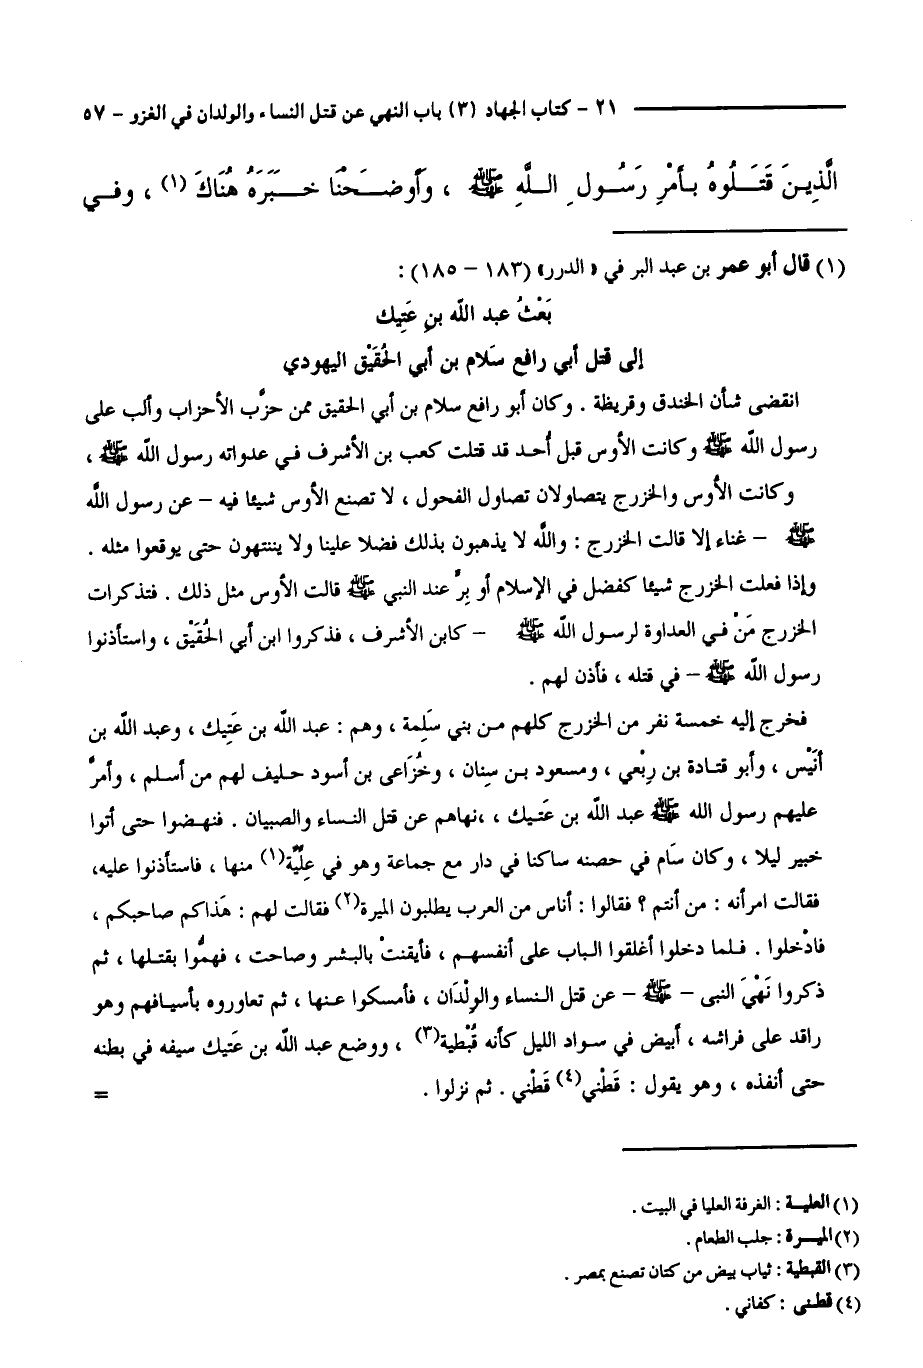 ٢١ - كتاب الجهاد (٣) باب النهي عن قتل النساء والولدان في الغزو - ٥٧
الَّذِينَ قَتَلُوهُ بأَمْرِ رَسُولِ اللَّهِ ﷺ ، وَأَوضَحْنَا خَبَرَهُ هُنَاكَ (١) ، وفي
(١) قال أبو عمر بن عبد البر في « الدرر» (١٨٣ - ١٨٥) :
بَعْثُ عبد اللّه بنِ عَتِيك
إلى قتل أبي رافع سَلام بن أبي الحُقَيْق اليهودي
انقضى شأن الخندق وقريظة . وكان أبو رافع سلام بن أبي الحقيق ممن حزَّب الأحزاب وألب على
رسول اللّه ﷺ وكانت الأوس قبل أُحد قد قتلت كعب بن الأشرف في عدواته رسول اللّه ﷺ ،
وكانت الأوس والخزرج يتصاولان تصاول الفحول ، لا تصنع الأوس شيئا فيه – عن رسول اللّه
ﷺ – غناء إلا قالت الخزرج : واللّه لا يذهبون بذلك فضلا علينا ولا ينتهون حتى يوقعوا مثله .
وإذا فعلت الخزرج شيئا كفضل في الإسلام أو بِرٍّ عند النبي ﷺ قالت الأوس مثل ذلك . فتذكرات
الخزرج مَنْ في العداوة لرسول اللّه ﷺ – كابن الأشرف ، فذكروا ابن أبي الحُقَيْق ، واستأذنوا
رسول اللّه ﷺ – في قتله ، فأذن لهم .
فخرج إليه خمسة نفر من الخزرج كلهم من بني سَلِمة ، وهم : عبد اللّه بن عَتِيك ، وعبد اللّه بن
أُنَيْس ، وأبو قتادة بن رِبْعي ، ومسعود بن سِنان ، وخُزَاعى بن أسود حليف لهم من أسلم ، وأمرَّ
عليهم رسول الله ﷺ عبد اللّه بن عَتيك ، ،نهاهم عن قتل النساء والصبيان . فنهضوا حتى أتوا
خيبر ليلا ، وكان سَام في حصنه ساكنا في دار مع جماعة وهو في عِلِّيَّة(١) منها ، فاستأذنوا عليه،
فقالت امرأنه : من أنتم ؟ فقالوا : أناس من العرب يطلبون الميرة(٢) فقالت لهم : هَذاكم صاحبكم ،
فادْخلوا . فلما دخلوا أغلقوا الباب على أنفسهم ، فأيقنتْ بالبشر وصاحت ، فهمُّوا بقتلها ، ثم
ذكروا نَهْيَ النبى – ﷺ – عن قتل النساء والوِلْدَان ، فأمسكوا عنها ، ثم تعاوروه بأسيافهم وهو
راقد على فراشه ، أبيض في سواد الليل كأنه قُبْطية(٣) ، ووضع عبد اللّه بن عَتيك سيفه في بطنه
حتى أنفذه ، وهو يقول : قَطْني(٤) قَطْني . ثم نزلوا . =
(١) العلية : الغرفة العليا في البيت .
(٢) الميرة : جلب الطعام .
(٣) القبطية : ثياب بيض من كتان تصنع بمصر .
(٤) قطنى : كفاني .